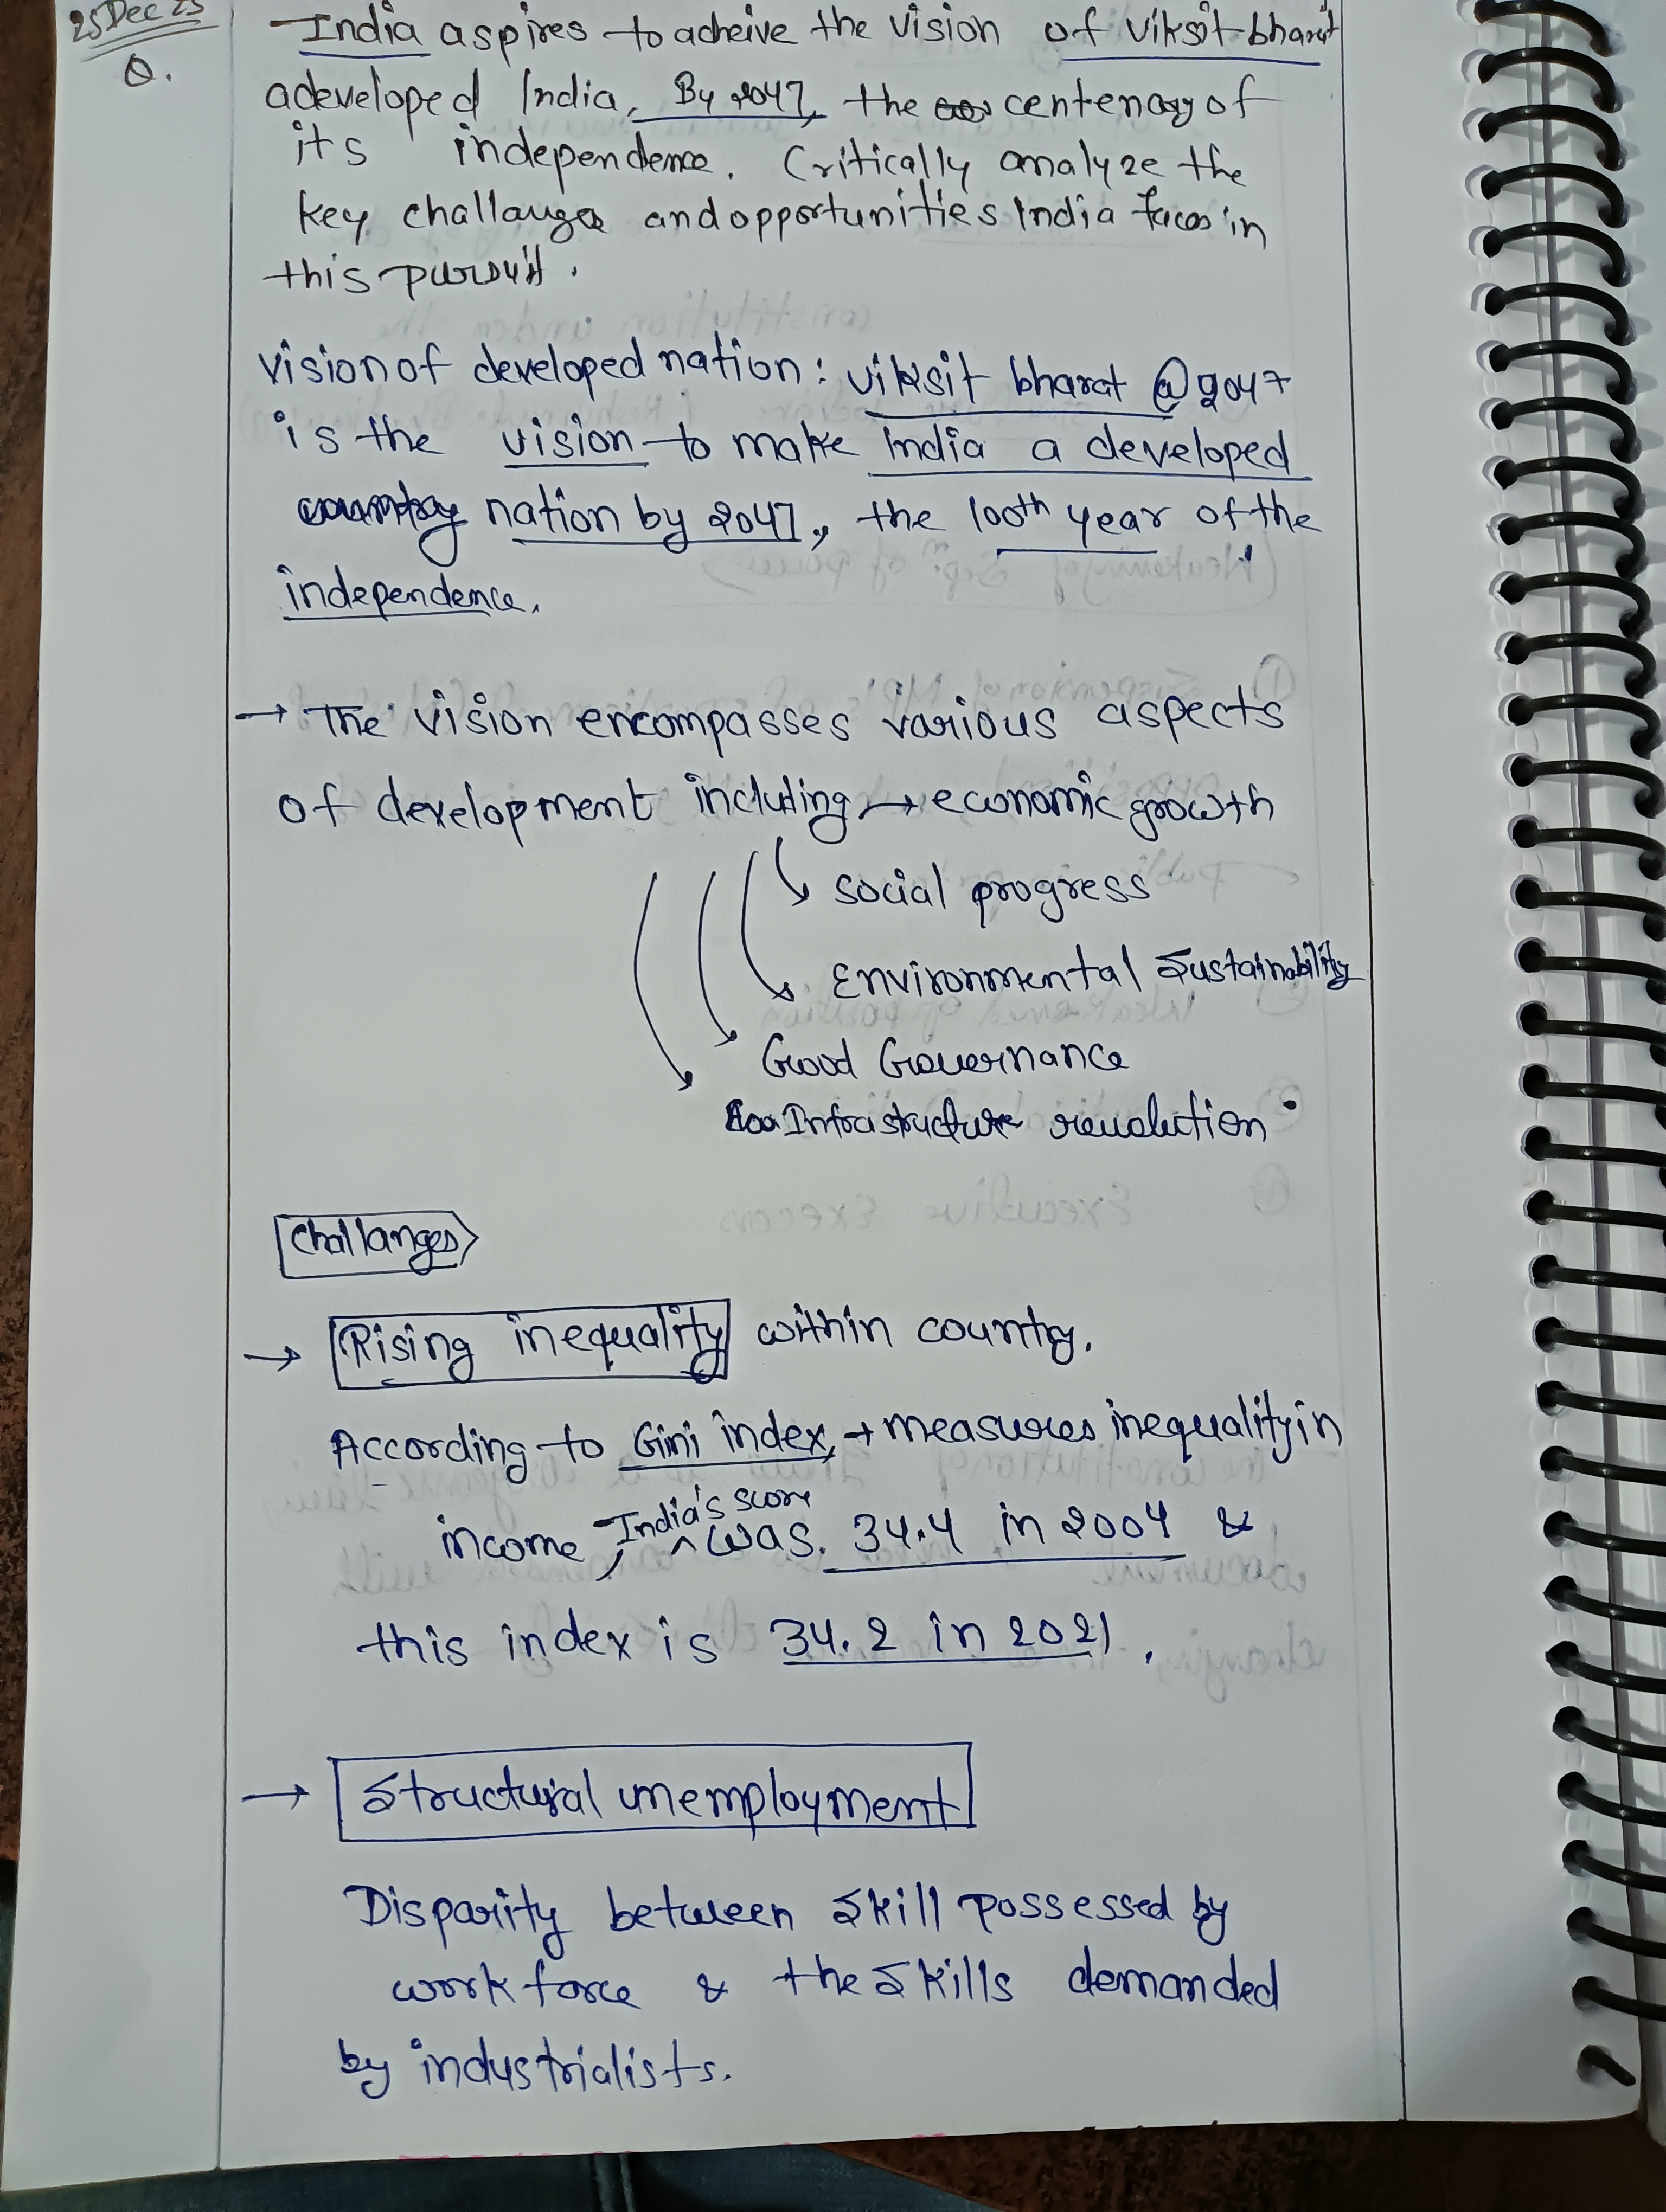 25 Dec 25
Q.
India aspires to acheive the vision of viksit bharat
a developed India, By 2047, the centenary of
its independence. Critically analyze the
key challanges and opportunities India faces in
this pursuit.
vision of developed nation: viksit bharat @2047
is the vision to make India a developed
country nation by 2047, the 100th year of the
independence.
→ The vision encompasses various aspects
of development including → economic growth
social progress
Environmental Sustainability
Good Governance
Infrastructure revolution
Challanges
→ Rising inequality within country.
According to Gini index, → measures inequality in
income, India's score was 34.4 in 2004 &
this index is 34.2 in 2021.
→ Structural unemployment
Disparity between skill possessed by
workforce & the skills demanded
by industrialists.